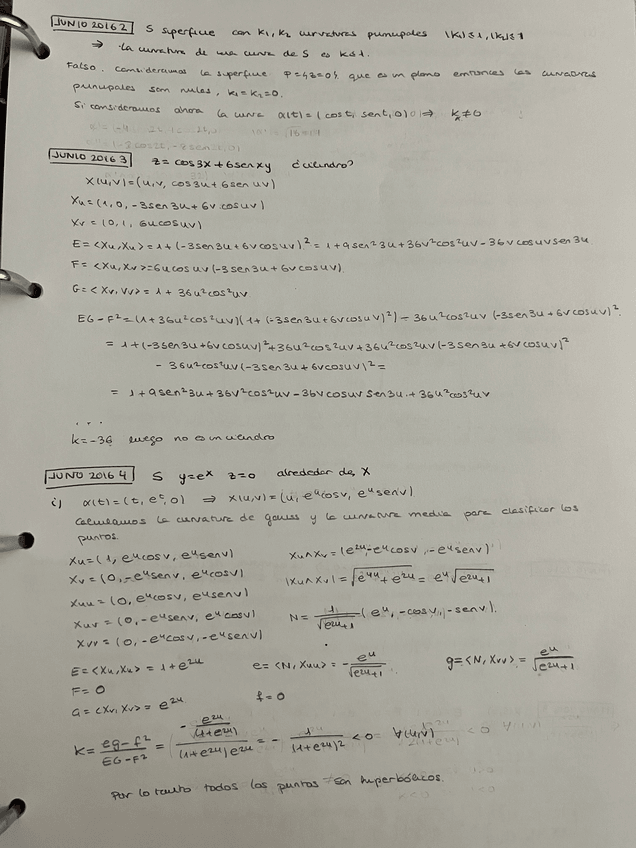 JUNIO 2016 2 S superficie con k₁, k₂ curvaturas principales |k₁|≤1, |k₂|≤1
⇒ la curvatura de una curva de S es k≤1.
Falso. Consideramos la superficie P={z=0}, que es un plano entonces las curvaturas
principales son nulas, k₁=k₂=0.
Si consideramos ahora la curva α(t)=(cost, sent, 0) ⇒ k ≠0
JUNIO 2016 3 z=cos3x+6senxy ¿cilindro?
X(u,v)=(u,v, cos3u+6senuv)
Xu=(1,0,-3sen3u+6vcosuv)
Xv=(0,1,6ucosuv)
E=<Xu,Xu>=1+(-3sen3u+6vcosuv)²=1+9sen²3u+36v²cos²uv-36vcosuvsen3u
F=<Xu,Xv>=6ucosuv(-3sen3u+6vcosuv)
G=<Xv,Vv>=1+36u²cos²uv
EG-F²=(1+36u²cos²uv)(1+(-3sen3u+6vcosuv)²)-36u²cos²uv(-3sen3u+6vcosuv)²
=1+(-3sen3u+6vcosuv)²+36u²cos²uv+36u²cos²uv(-3sen3u+6vcosuv)²
-36u²cos²uv(-3sen3u+6vcosuv)²=
=1+9sen²3u+36v²cos²uv-36vcosuvsen3u+36u²cos²uv
...
k=-36 luego no es un cilindro
JUNIO 2016 4 S y=eˣ z=0 alrededor de X
i) α(t)=(t, eᵗ, 0) ⇒ X(u,v)=(u, eᵘcosv, eᵘsenv)
Calculamos la curvatura de gauss y la curvatura media para clasificar los
puntos.
Xu=(1, eᵘcosv, eᵘsenv) Xu∧Xv=(e²ᵘ-eᵘcosv, -eᵘsenv)
Xv=(0,-eᵘsenv, eᵘcosv) |Xu∧Xv|=√(e⁴ᵘ+e²ᵘ)=eᵘ√(e²ᵘ+1)
Xuu=(0, eᵘcosv, eᵘsenv)
Xuv=(0,-eᵘsenv, eᵘcosv) N=1/√(e²ᵘ+1) (eᵘ, -cosv, -senv).
Xvv=(0,-eᵘcosv,-eᵘsenv)
E=<Xu,Xu>=1+e²ᵘ e=<N,Xuu>=-eᵘ/√(e²ᵘ+1) g=<N,Xvv>=eᵘ/√(e²ᵘ+1)
F=0
G=<Xv,Xv>=e²ᵘ f=0
K=(eg-f²)/(EG-F²)=(-e²ᵘ/(1+e²ᵘ))/((1+e²ᵘ)e²ᵘ)=-1/(1+e²ᵘ)²<0 ∀(u,v)
Por lo tanto todos los puntos son hiperbólicos.